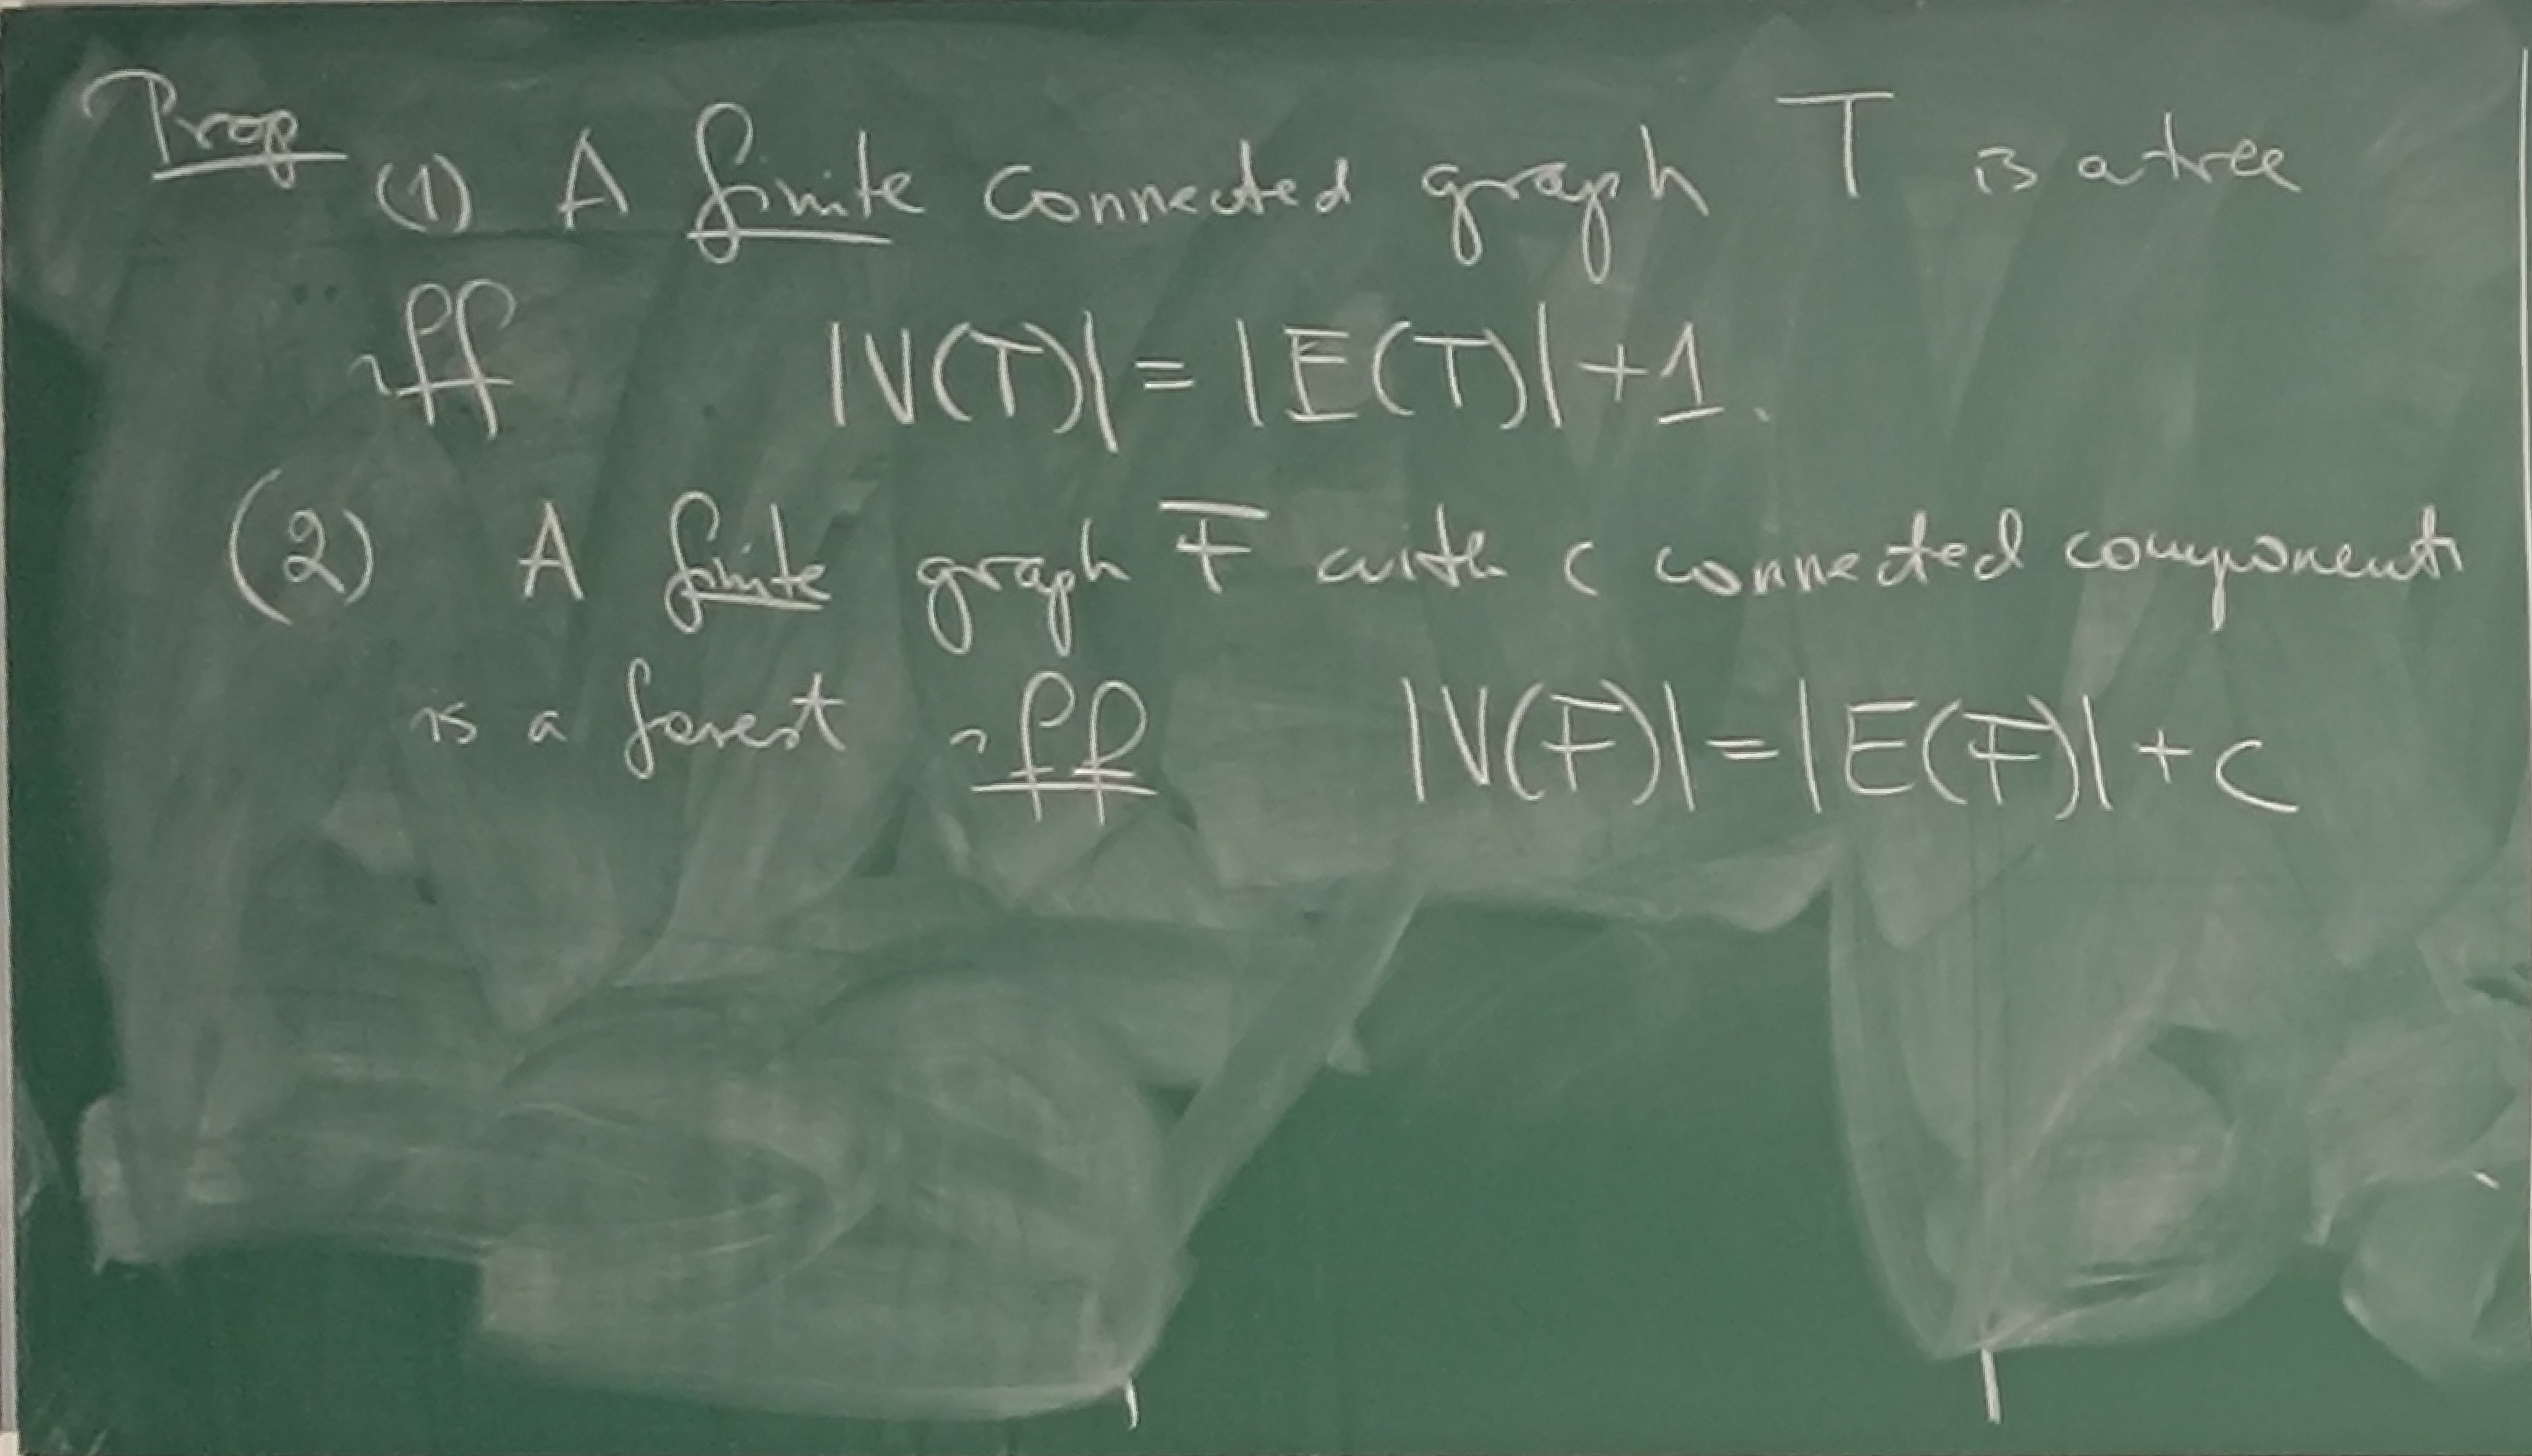 Prop (1) A finite connected graph T is a tree
iff |V(T)| = |E(T)| + 1.
(2) A finite graph F with c connected components
is a forest iff |V(F)| = |E(F)| + c